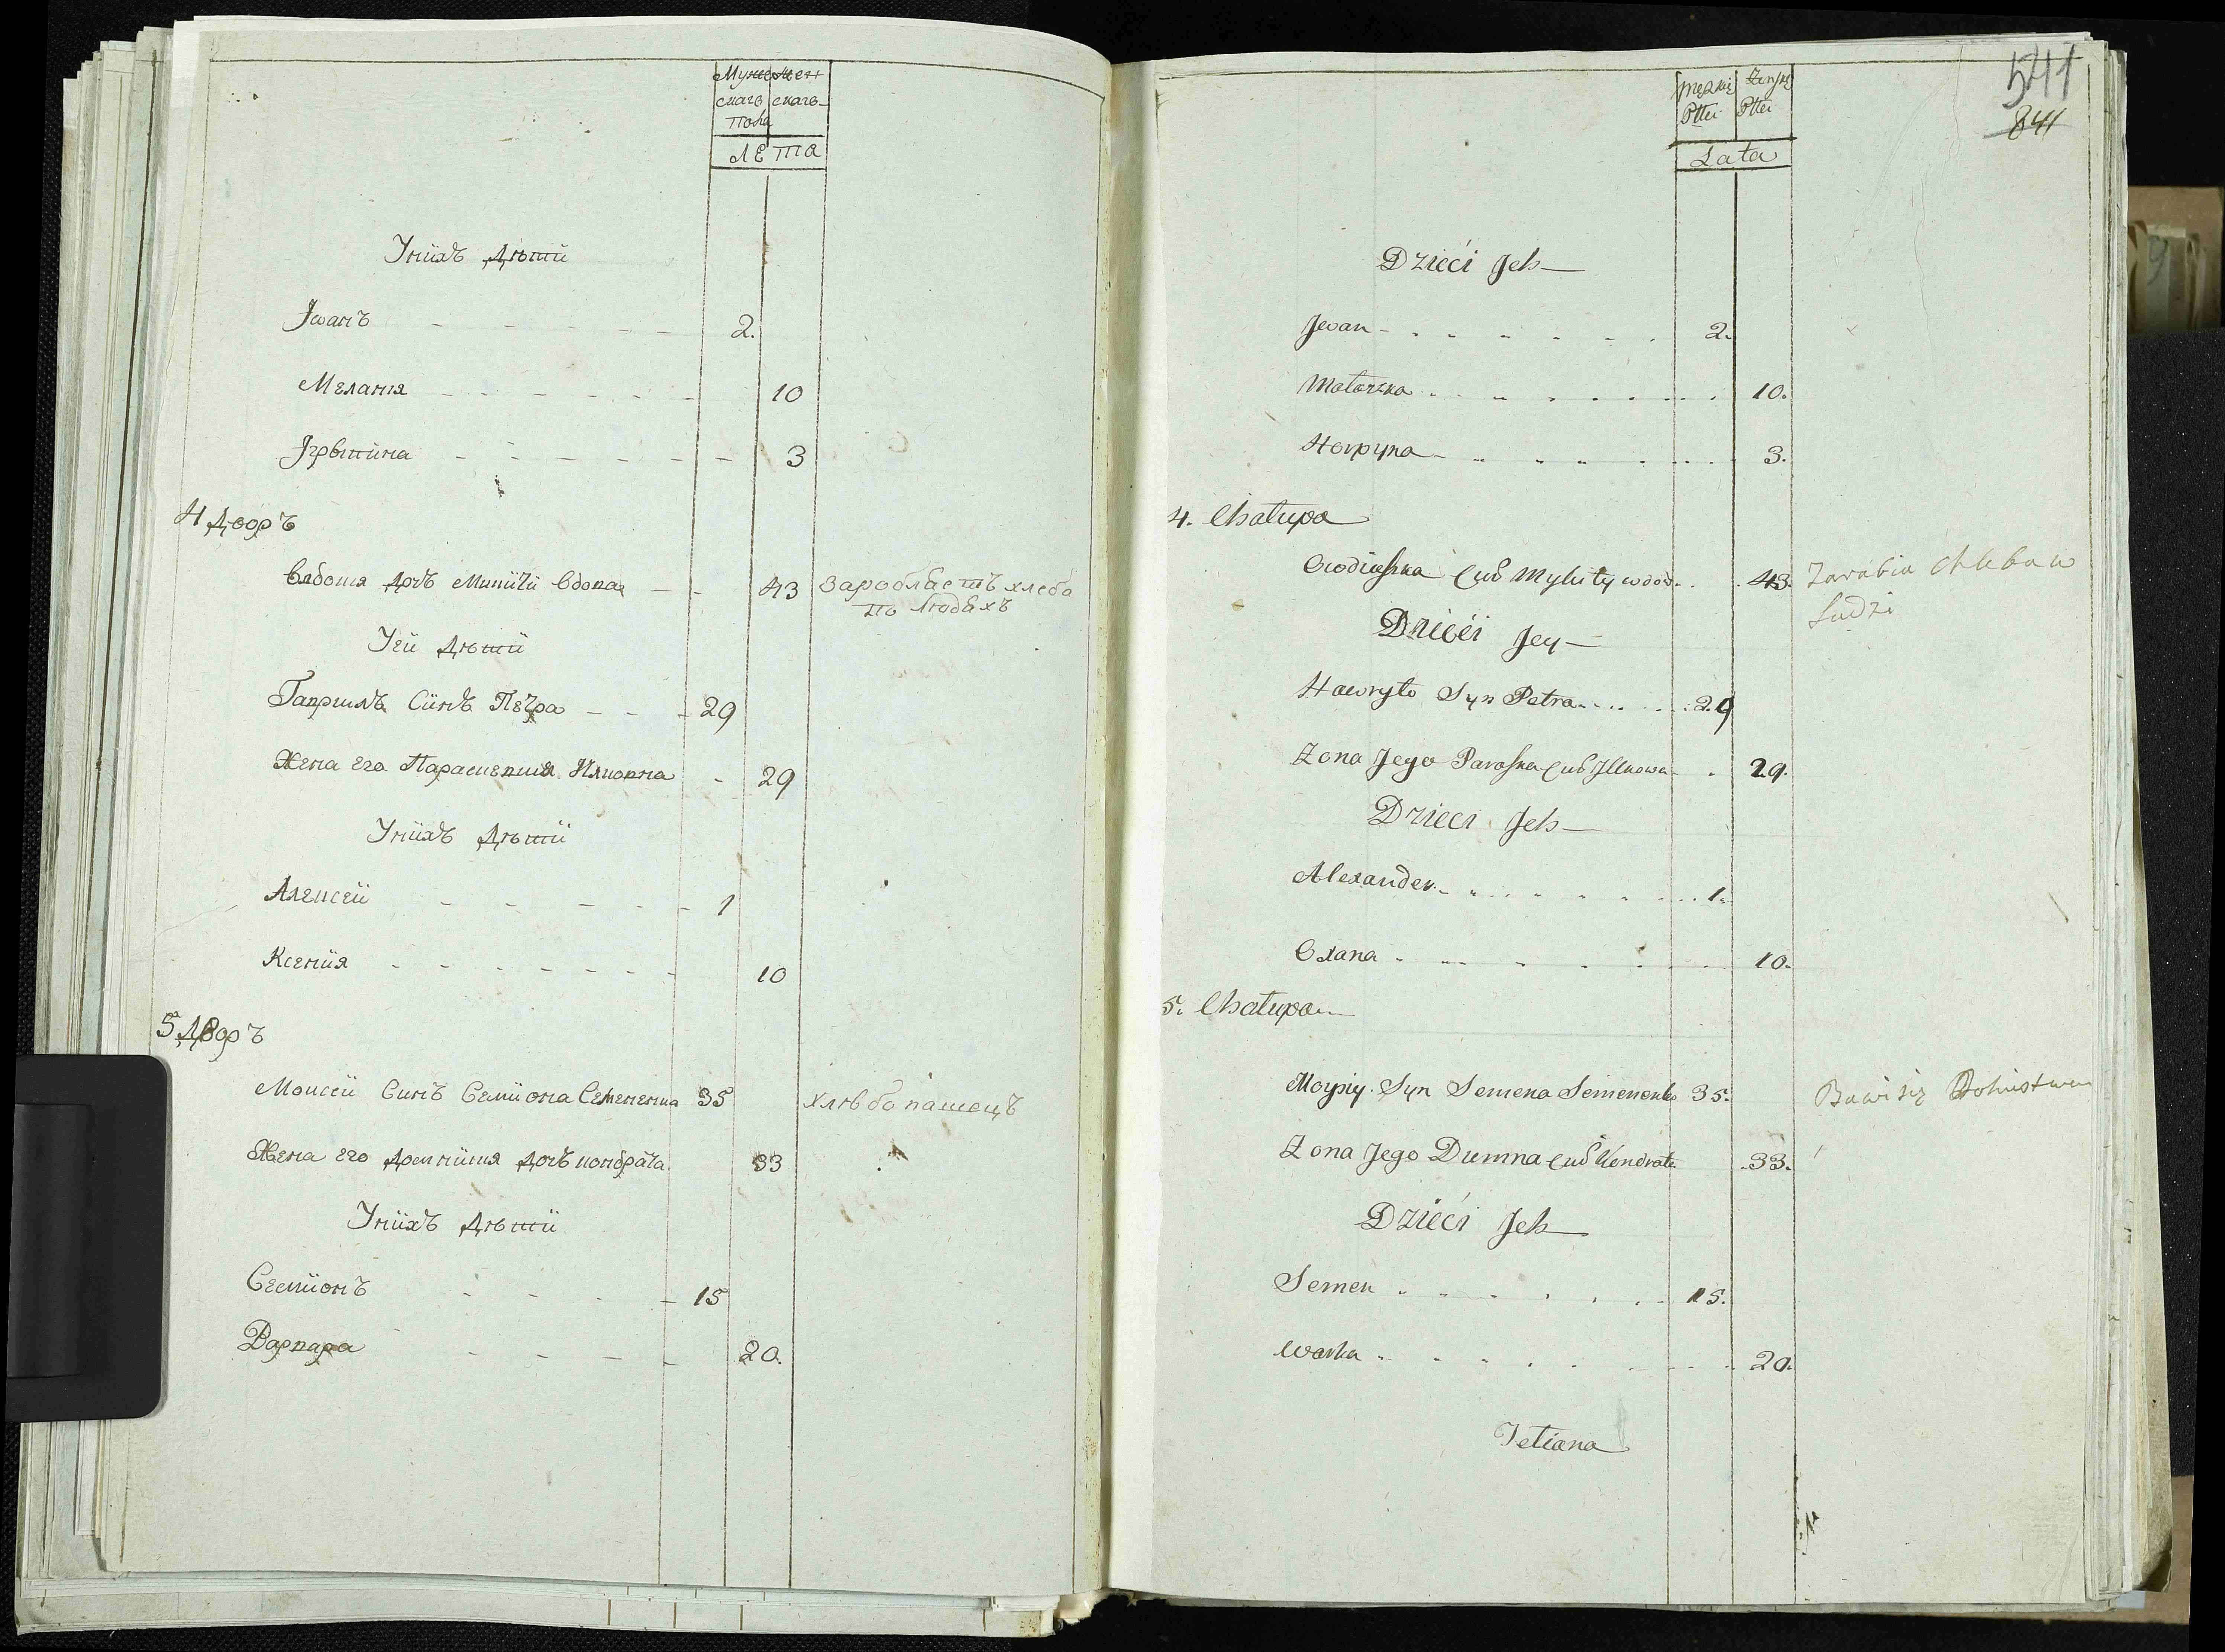 Муже жен
скагѡ скагѡ
пола
лѣта
Унiихъ дѣтiи
Iванъ 2.
Меланiя 10
Iгрыпина 3
4 дворъ
Евдокiя дочъ Микiти вдова 43 Заробляетъ хлеба
по людяхъ
Уеи дѣтiи
Гаврилъ Синъ Пѣтра 29
Жена его Параскевия Илкова 29
Унiихъ дѣтiи
Алексеи 1
Ксенiя 10
5 дворъ
Моисеи Синъ Семiона Семененка 35 хлѣбопашецъ
Жена его Домнiкия дочъ кондрата 33
Унiихъ дѣтiи
Семiонъ 15
Варвара 20.
541
841
męzkiy Żeńskiy
Płci Płci
Lata
Dzieci Jch
Jwan 2.
Małaszka 10.
Horpyna 3.
4. Chałupa
Owdiuszka Cur Mykity wdow. 43. Zarabia chleba w
Ludzi
Dzieci Jey
Hawryło Syn Petra 29
Zona Jego Paraska Cur Jlkowa 29.
Dzieci Jch
Alexander 1.
Oxana 10.
5. Chałupa
Moysiy Syn Semena Semenenko 35. Bawi się Rolnistwem
Zona Jego Dumna Cur Kondrata 33.
Dzieci Jch
Semen 15.
Warka 20.
Tetiana